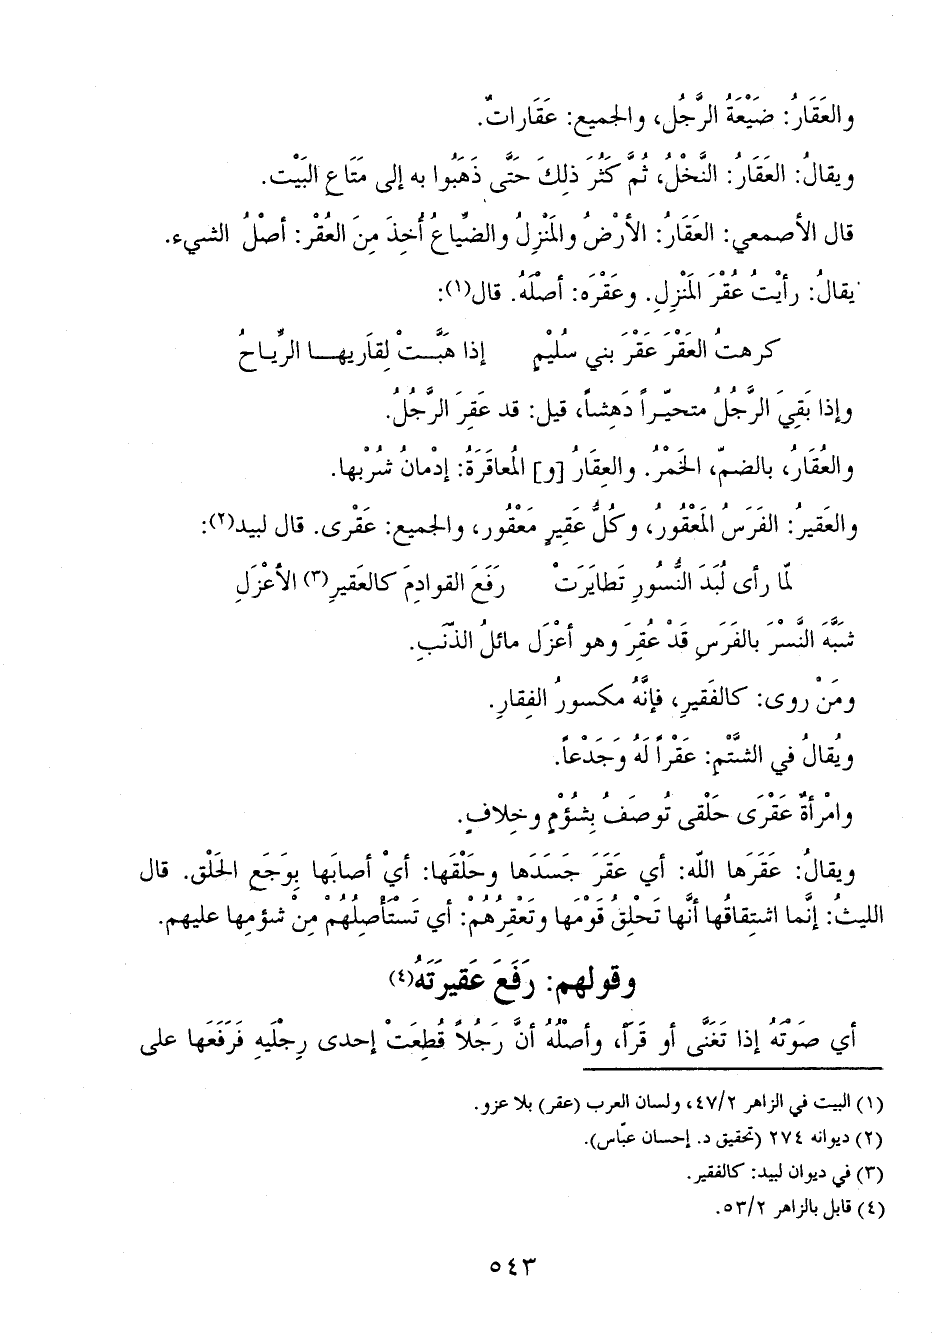 والعَقَارُ: ضَيْعَةُ الرَّجُلِ، والجميع: عَقَاراتٌ.
ويقالُ: العَقَارُ: النَّخْلُ، ثُمَّ كَثُرَ ذلِكَ حَتَّى ذَهَبُوا به إلى مَتَاعِ البَيْت.
قال الأصمعي: العَقَارُ: الأرْضُ والمَنْزِلُ والضِّياعُ أُخِذَ مِنَ العُقْر: أصلُ الشيء.
يقالُ: رأيْتُ عُقْرَ المَنْزِلِ. وعَقْرَه: أصلَهُ. قال(١):
كرهتُ العَقْرَ عَقْرَ بني سليمٍ إذا هَبَّـت لِقارِيهـا الرِّيـاحُ
وإذا بَقِيَ الرَّجُلُ متحيّراً دَهِشاً، قيل: قد عَقِرَ الرَّجُلُ.
والعُقَارُ، بالضمّ، الخَمْرُ. والعِقارُ [و] المُعاقَرَةُ: إدْمانُ شُرْبها.
والعَقيرُ: الفَرَسُ المَعْقُورُ، وكُلُّ عقيرٍ مَعْقُور، والجميع: عَقْرى. قال لبيد(٢):
لمّا رأى لُبَدَ النُّسُورِ تَطايَرَتْ رَفَعَ القوادِمَ كالعَقيرِ(٣) الأعْزَلِ
شبَّهَ النَّسْرَ بالفَرَسِ قَدْ عُقِرَ وهو أعْزَل مائلُ الذَّنَبِ.
ومَنْ روى: كالفَقيرِ، فإنَّهُ مكسورُ الفِقارِ.
ويُقالُ في الشَّتْمِ: عَقْراً لَهُ وجَدْعاً.
وامْرأةٌ عَقْرَى حَلْقى تُوصَفُ بِشُؤْمٍ وخِلافٍ.
ويقالُ: عَقَرَها اللّه: أي عَقَرَ جَسَدَها وحَلْقَها: أيْ أصابَها بِوَجَعِ الحَلْق. قال
الليثُ: إنَّما اشتِقاقُها أنَّها تَحْلِقُ قَوْمَها وتَعْقِرُهُمْ: أي تَسْتَأصِلُهُمْ مِنْ شؤمِها عليهم.
وقولهم: رَفَعَ عَقيرَتَهُ(٤)
أي صَوْتَهُ إذا تَغَنَّى أو قَرَأ، وأصلُهُ أنَّ رَجُلاً قُطِعَتْ إحدى رِجْلَيهِ فَرَفَعَها على
(١) البيت في الزاهر ٤٧/٢، ولسان العرب (عقر) بلا عزو.
(٢) ديوانه ٢٧٤ (تحقيق د. إحسان عبّاس).
(٣) في ديوان لبيد: كالفقير.
(٤) قابل بالزاهر ٥٣/٢.
٥٤٣